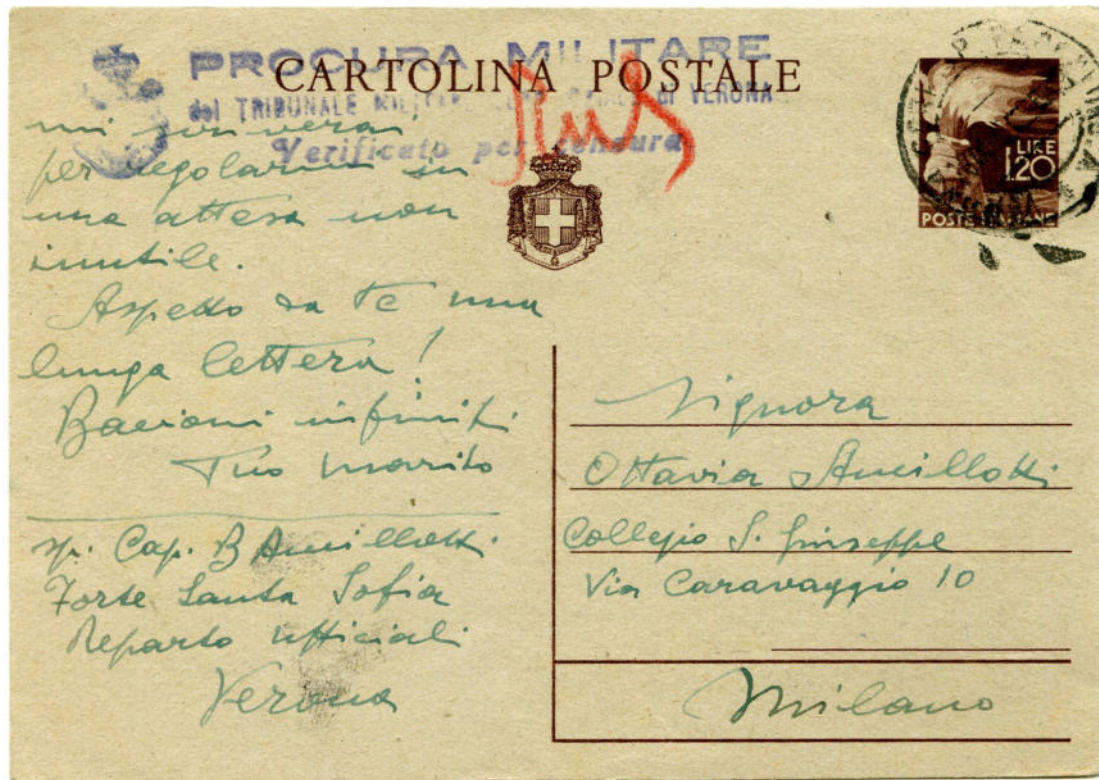 PROCURA MILITARE
CARTOLINA POSTALE
del TRIBUNALE MILITARE di VERONA
Verificato per censura
LIRE
1.20
POSTE ITALIANE
mi scriverai
per regolarmi in
una attesa non
inutile.
Aspetto da te una
lunga lettera!
Bacioni infiniti
Tuo marito
sp. Cap. B Ancillotti
Forte Santa Sofia
Reparto ufficiali
Verona
Signora
Ottavia Ancillotti
Collegio S. Giuseppe
Via Caravaggio 10
Milano